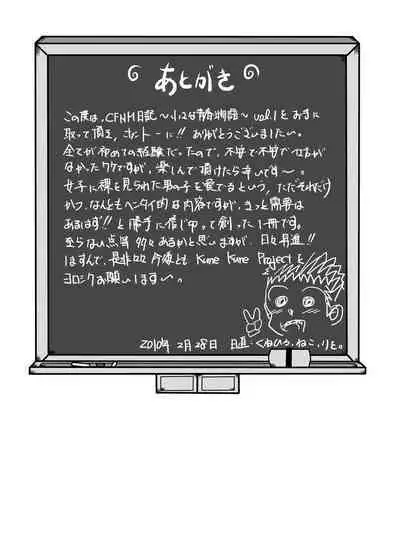 あとがき
この度は、CFNM日記〜小さな青春物語〜 vol.1をお手に
取って頂き、ホントーに!! ありがとうございましたい。
全てが初めての経験だったので、不安で不安で仕方が
なかったワケですが、楽しんで頂けたら幸いです〜。
女子に裸を見られた男の子を愛でるという、ただそれだけ
かつ、なんともヘンタイ的な内容ですが、きっと需要は
あるはず!! と勝手に信じ切って創った一冊です。
至らない点等多々あるかと思いますが、日々昇進!!
はすんで、是非々々今後とも Kune Kune Project を
ヨロシクお願いします〜。
2010年 2月28日
くねひろ、ねこ、りと。